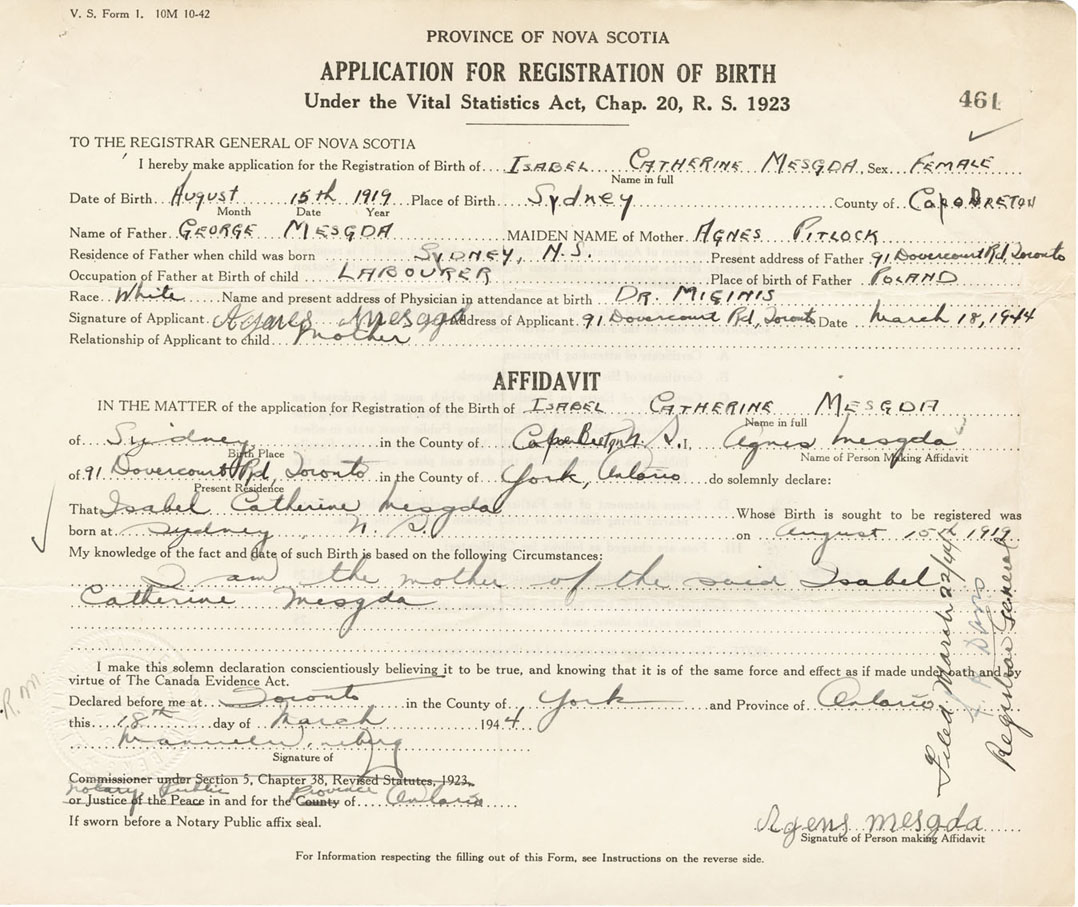 V. S. Form 1. 10M 10-42
PROVINCE OF NOVA SCOTIA
APPLICATION FOR REGISTRATION OF BIRTH
Under the Vital Statistics Act, Chap. 20, R. S. 1923
461
TO THE REGISTRAR GENERAL OF NOVA SCOTIA
I hereby make application for the Registration of Birth of ISABEL CATHERINE MESGDA, Sex FEMALE
Name in full
Date of Birth August 15th 1919 Place of Birth Sydney County of Cape BRETON
Month Date Year
Name of Father GEORGE MESGDA MAIDEN NAME of Mother AGNES PITLOCK
Residence of Father when child was born SYDNEY, N.S. Present address of Father 91 Dovercourt Rd, Toronto
Occupation of Father at Birth of child LABOURER Place of birth of Father POLAND
Race White Name and present address of Physician in attendance at birth DR. MIGINIS
Signature of Applicant Agenes Mesgda Address of Applicant 91 Dovercourt Rd, Toronto Date March 18, 1944
Relationship of Applicant to child Mother
AFFIDAVIT
IN THE MATTER of the application for Registration of the Birth of ISABEL CATHERINE MESGDA
Name in full
of Sydney in the County of Cape Breton N.S. I, Agnes Mesgda
Birth Place Name of Person Making Affidavit
of 91 Dovercourt Rd, Toronto in the County of York, Ontario do solemnly declare:
Present Residence
That Isabel Catherine Mesgda Whose Birth is sought to be registered was
born at Sydney N. S. on August 15th 1919
My knowledge of the fact and date of such Birth is based on the following Circumstances:
I am the mother of the said Isabel
Catherine Mesgda
I make this solemn declaration conscientiously believing it to be true, and knowing that it is of the same force and effect as if made under oath and by
virtue of The Canada Evidence Act.
Declared before me at Toronto in the County of York and Province of Ontario
this 18th day of March 1944.
Signature of
Commissioner under Section 5, Chapter 38, Revised Statutes, 1923,
Notary Public Province
or Justice of the Peace in and for the County of Ontario
If sworn before a Notary Public affix seal.
Agens mesgda
Signature of Person making Affidavit
For Information respecting the filling out of this Form, see Instructions on the reverse side.
Filed March 22/44
Registrar General
R.M.